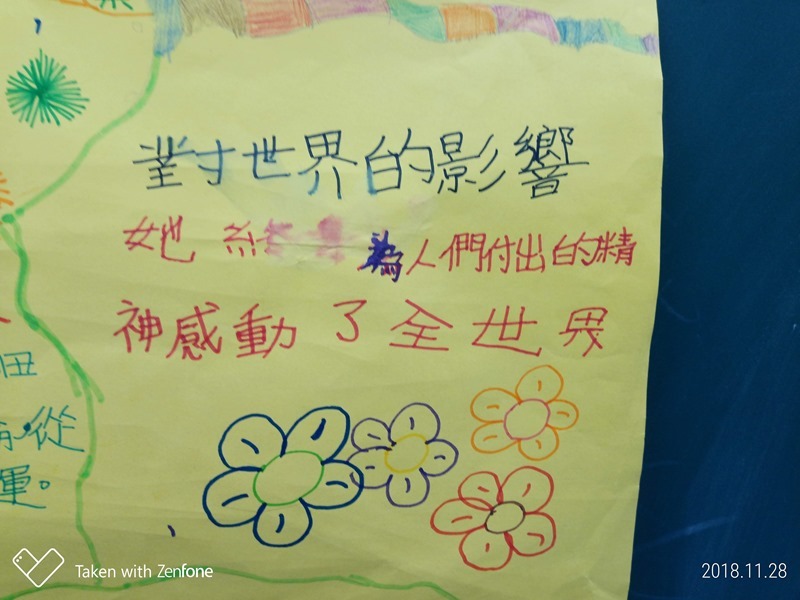 對世界的影響
她終 為人們付出的精
神感動了全世界
從
運。
Taken with Zenfone
2018.11.28